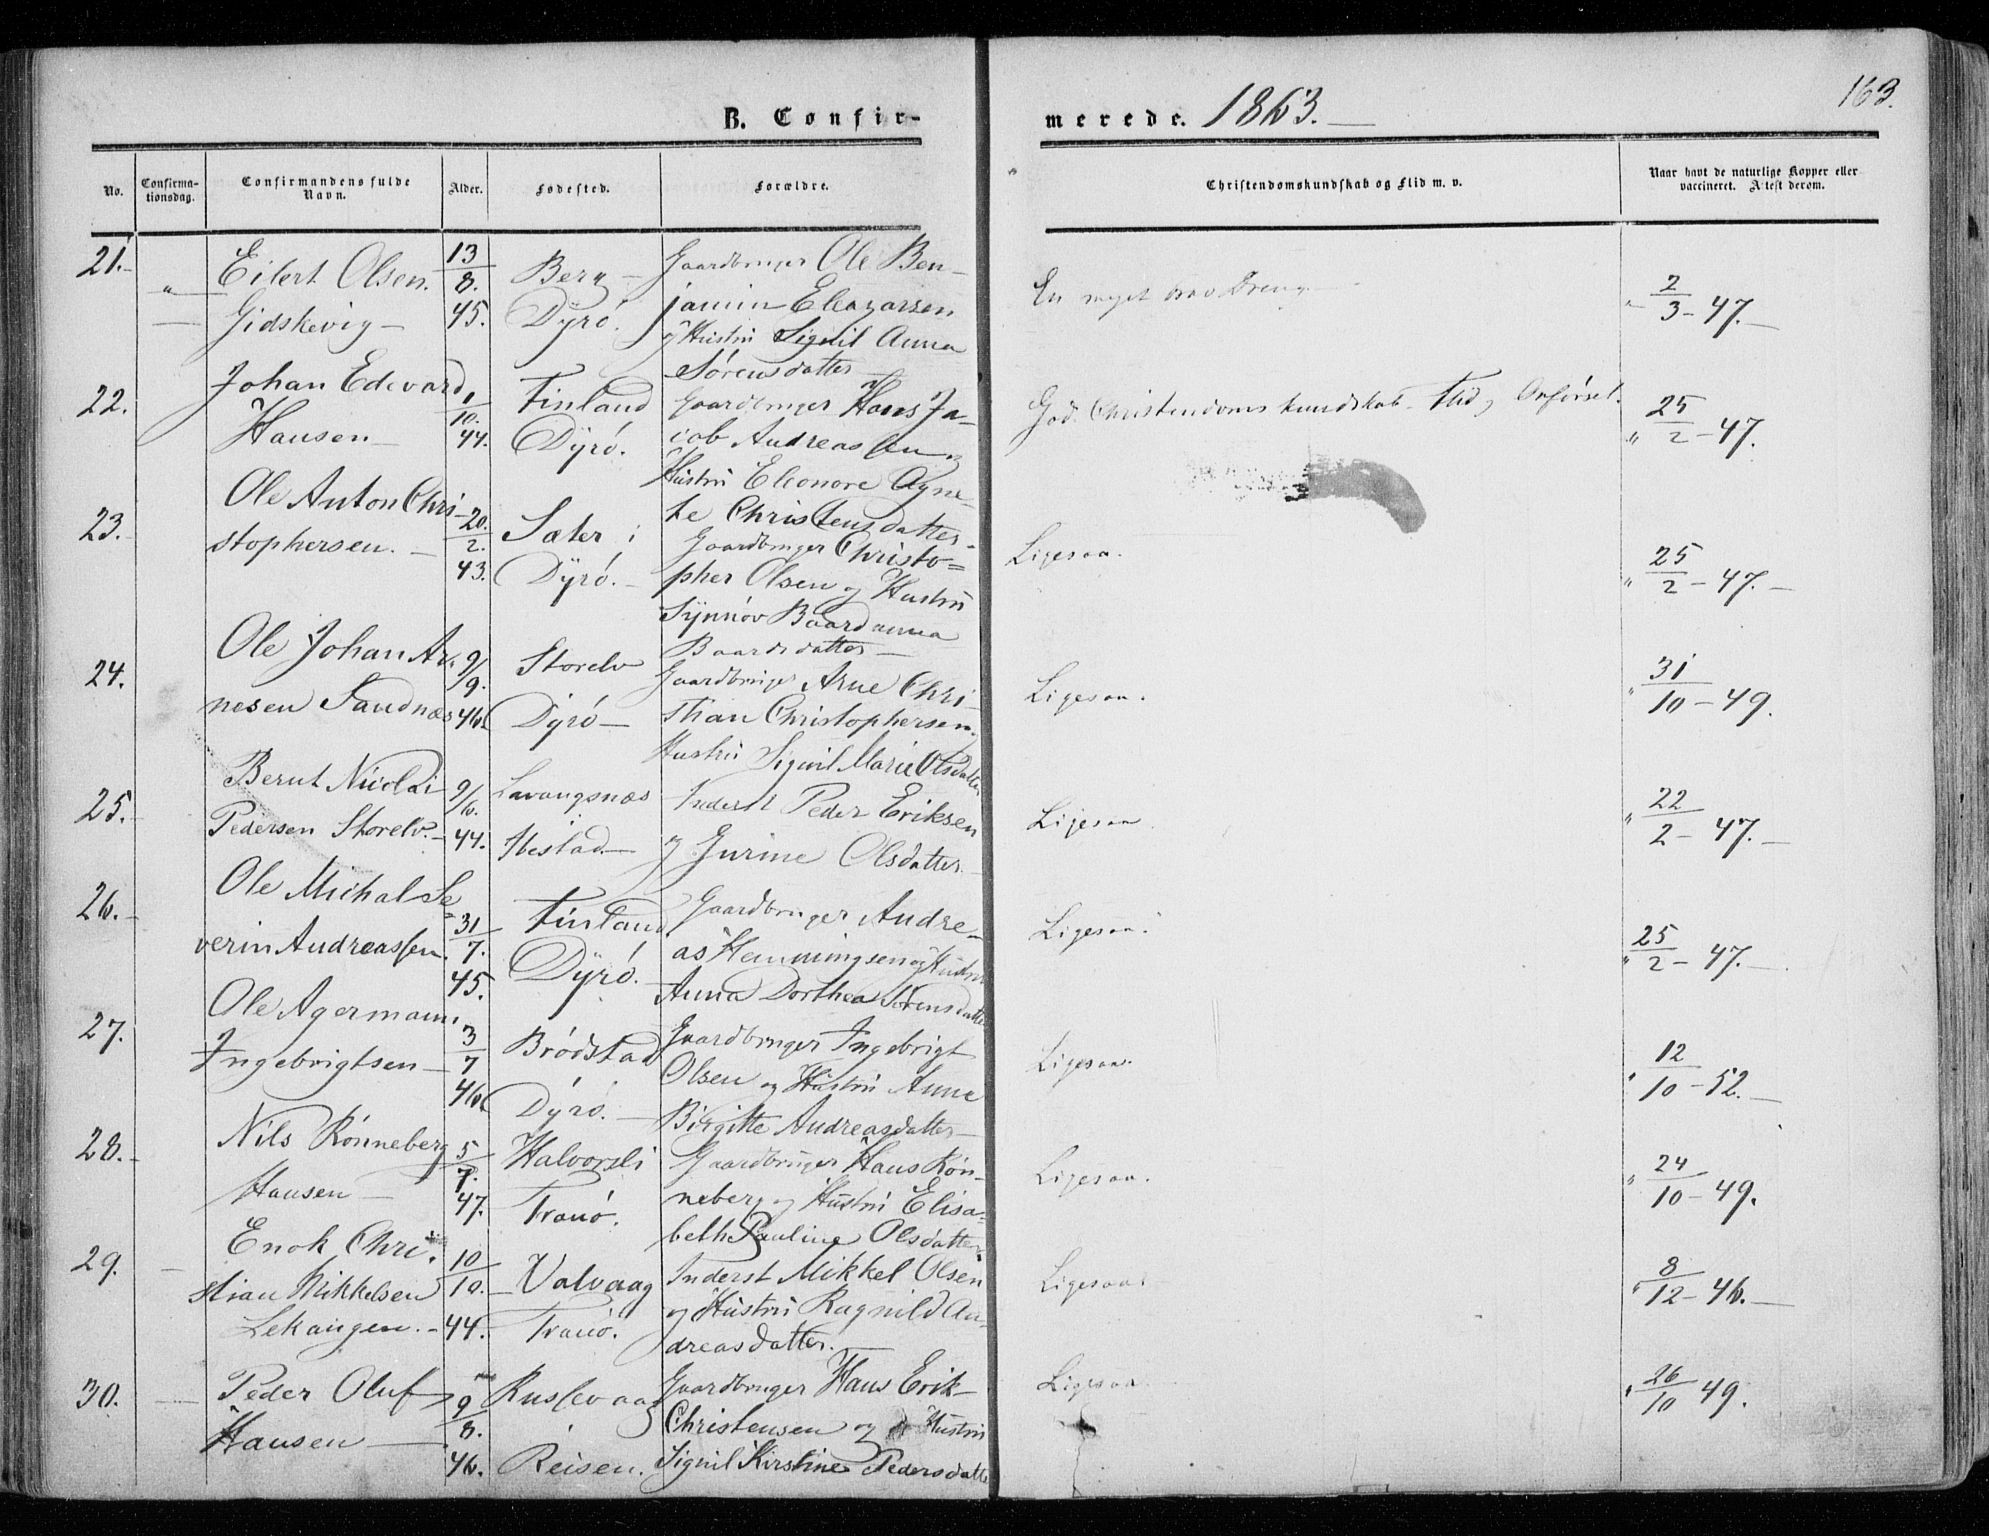 163.
B. Confir-
merede. 1863.
No.
Confirma-
tionsdag.
Confirmandens fulde
Navn.
Alder.
Fødested.
Forældre.
Christendomskundskab og Flid m. v.
Naar havt de naturlige Kopper eller
vaccineret. Attest derom.
21.
Eilert Olsen
Gidskevig
13/8. 45.
Berg
Dÿrö.
Gaardbruger Ole Ben-
jamin Eleazarsen
og Hustrü Signil Anna
Sörensdatter
En meget brav Dreng
" 2/3 - 47.
22.
Johan Edevard
Hansen
1/10. 44.
Finland
Dÿrö.
Gaardbruger Hans Ja-
cob Andreassen og
Hüstrü Eleonore Agne-
te Christensdatter
God Christendomskundskab Flid og Opförsel.
" 25/2 - 47.
23.
Ole Anton Chri-
stophersen.
20./2. 43.
Sæter i
Dÿrö.
Gaardbruger Christo=
pher Olsen og Hustrü
Sÿnnöv Baardanna
Baardsdatter
Ligesaa.
" 25/2 - 47.
24.
Ole Johan Ar-
nesen Sandnæs
9/9. 46.
Storelv
Dÿrö
Gaardbruger Arne Chri-
stian Christophersen
Hustrü Signil Marie Olsdatter
Ligesaa.
" 31/10 - 49.
25.
Bernt Nicolai
Pedersen Storelv.
9/6. 44.
Lavangsnæs
Ibestad.
Inderst Peder Eriksen
og Gurine Olsdatter
Ligesaa
" 22/2 - 47.
26.
Ole Michal Se-
verin Andreassen.
31/7. 45.
Finland
Dÿrö.
Gaardbruger Andre-
as Henningsen og Hustrü
Anna Dorthea Sörensdatter
Ligesaa.
" 25/2 - 47.
27.
Ole Agerman
Ingebrigtsen
3/7 46.
Brödstad
Dÿrö.
Gaardbruger Ingebrigt
Olsen og Hüstrü Anne
Birgitte Andreasdatter
Ligesaa.
" 12/10 - 52.
28.
Nils Rönneberg
Hansen
5/7. 47.
Halvorsli
Tranö.
Gaardbrüger Hans Rön-
neberg og Hüstrü Elisa=
beth Pauline Olsdatter
Ligesaa.
" 24/10 - 49.
29.
Enok Chri-
stian Mikkelsen
Lekangen.
10/10. 44.
Valvaag
Tranö.
Inderst Mikkel Olsen
og Hüstrü Ragnild An-
dreasdatter.
Ligesaa.
" 8/12 - 46.
30.
Peder Oluf
Hansen
9/8. 46.
Russevaag
Reisen.
Gaardbruger Hans Erik
Christensen og Hüstrü
Signil Kirstine Pedersdatter
Ligesaa
" 26/10 49.